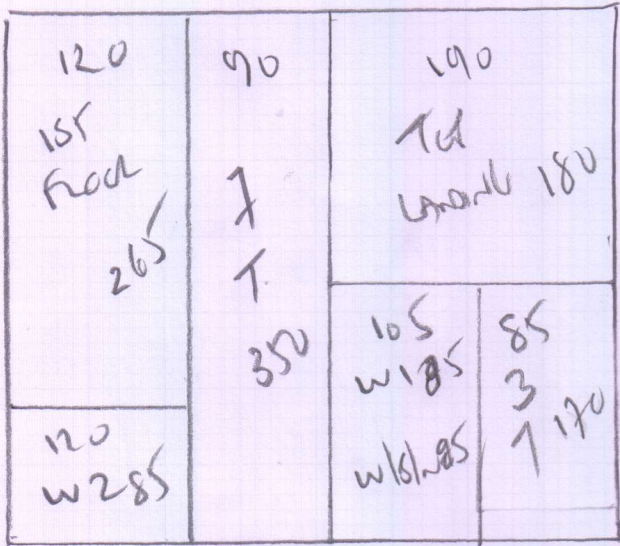 120
1ST
FLOOR
265
120
W2 85
90
7
T.
350
190
TOP
LANDING 180
105
W1 85
85
3
T 170